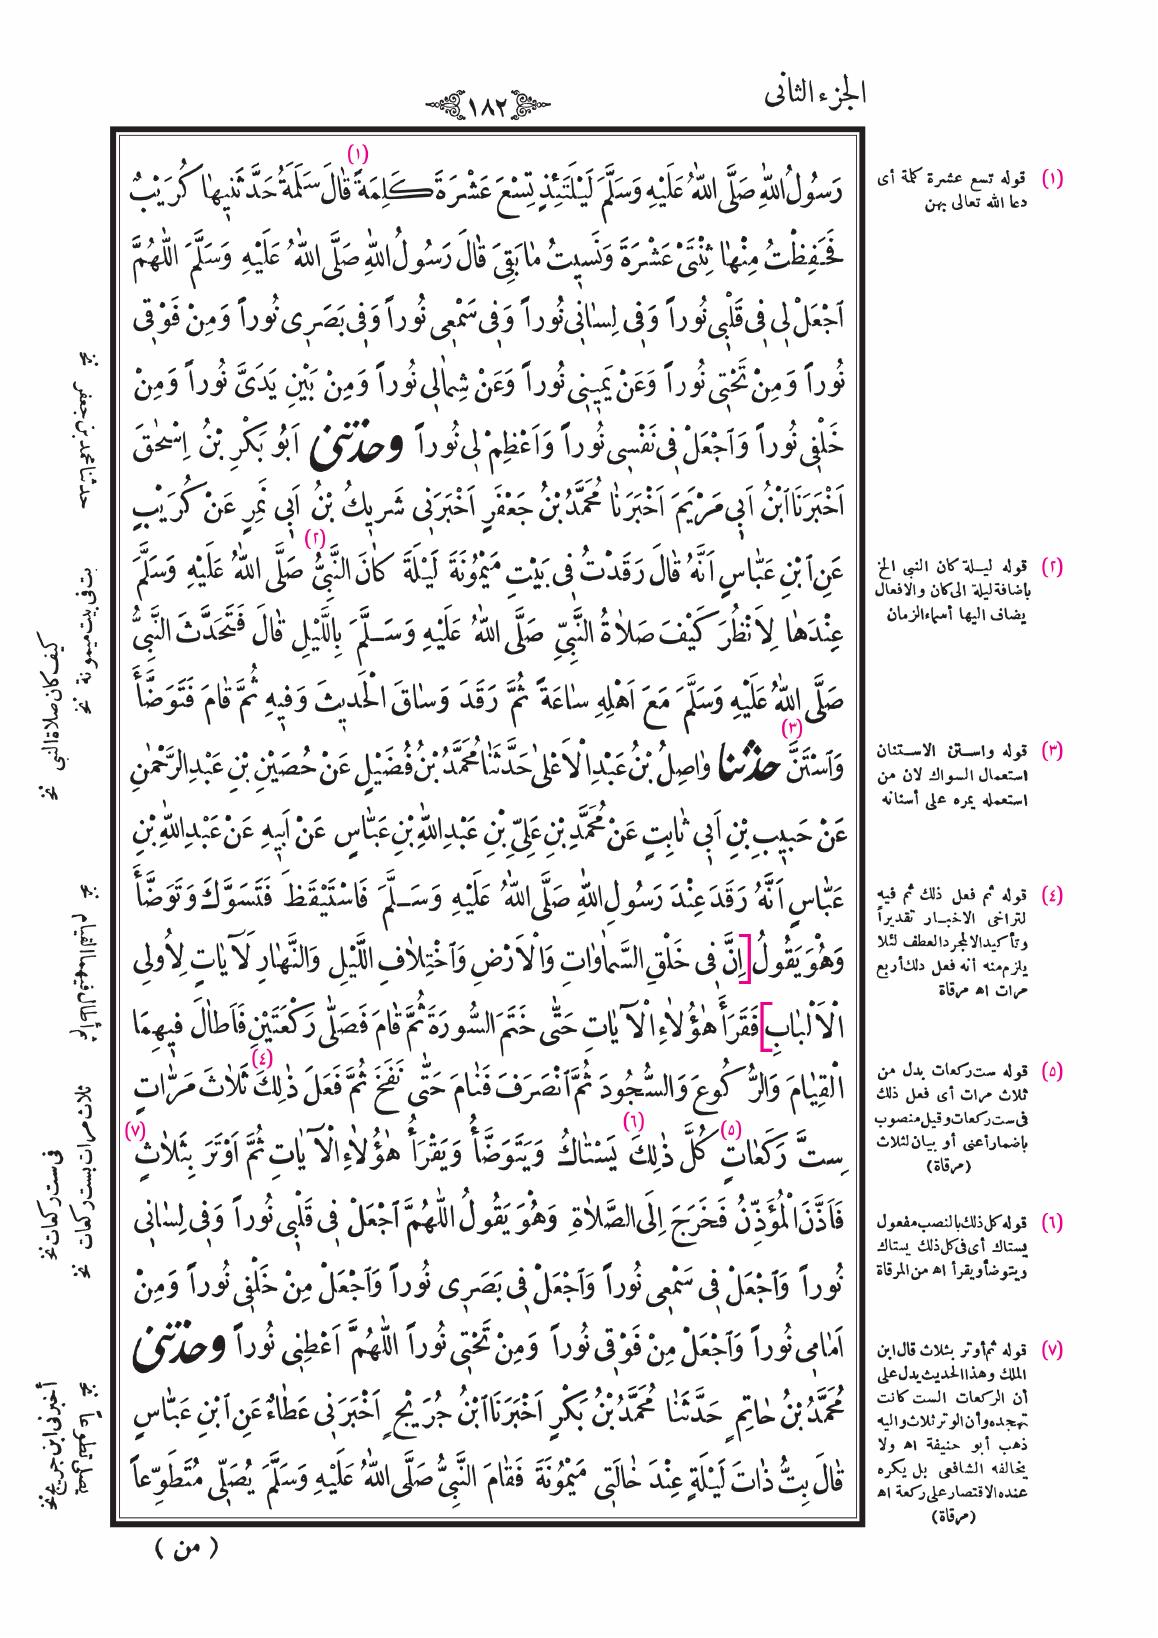 الجزء الثانى
١٨٢
رَسُولُ اللهِ صَلَّى اللهُ عَلَيْهِ وَسَلَّمَ لَيْلَتَئِذٍ تِسْعَ عَشْرَةَ كَلِمَةً (١) قَالَ سَلَمَةُ حَدَّثَنِيهَا كُرَيْبٌ
فَحَفِظْتُ مِنْهَا ثِنْتَىْ عَشْرَةَ وَنَسِيتُ مَا بَقِىَ قَالَ رَسُولُ اللهِ صَلَّى اللهُ عَلَيْهِ وَسَلَّمَ اللّٰهُمَّ
اَجْعَلْ لِى فِى قَلْبِى نُوراً وَفِى لِسَانِى نُوراً وَفِى سَمْعِى نُوراً وَفِى بَصَرِى نُوراً وَمِنْ فَوْقِى
نُوراً وَمِنْ تَحْتِى نُوراً وَعَنْ يَمِينِى نُوراً وَعَنْ شِمَالِى نُوراً وَمِنْ بَيْنِ يَدَىَّ نُوراً وَمِنْ
خَلْفِى نُوراً وَاَجْعَلْ فِى نَفْسِى نُوراً وَاَعْظِمْ لِى نُوراً وحدثنى اَبُو بَكْرِ بْنُ اِسْحٰقَ
اَخْبَرَنَا ابْنُ اَبِى مَرْيَمَ اَخْبَرَنَا مُحَمَّدُ بْنُ جَعْفَرٍ اَخْبَرَنِى شَرِيكُ بْنُ اَبِى نَمِرٍ عَنْ كُرَيْبٍ
عَنِ ابْنِ عَبَّاسٍ اَنَّهُ قَالَ رَقَدْتُ فِى بَيْتِ مَيْمُونَةَ لَيْلَةَ كَانَ النَّبِىُّ (٢) صَلَّى اللهُ عَلَيْهِ وَسَلَّمَ
عِنْدَهَا لِاَنْظُرَ كَيْفَ صَلَاةُ النَّبِىِّ صَلَّى اللهُ عَلَيْهِ وَسَلَّمَ بِاللَّيْلِ قَالَ فَتَحَدَّثَ النَّبِىُّ
صَلَّى اللهُ عَلَيْهِ وَسَلَّمَ مَعَ اَهْلِهِ سَاعَةً ثُمَّ رَقَدَ وَسَاقَ الْحَدِيثَ وَفِيهِ ثُمَّ قَامَ فَتَوَضَّأَ
وَاَسْتَنَّ (٣) حدثنا وَاصِلُ بْنُ عَبْدِ الْاَعْلٰى حَدَّثَنَا مُحَمَّدُ بْنُ فُضَيْلٍ عَنْ حُصَيْنِ بْنِ عَبْدِ الرَّحْمٰنِ
عَنْ حَبِيبِ بْنِ اَبِى ثَابِتٍ عَنْ مُحَمَّدِ بْنِ عَلِىِّ بْنِ عَبْدِ اللهِ بْنِ عَبَّاسٍ عَنْ اَبِيهِ عَنْ عَبْدِ اللهِ بْنِ
عَبَّاسٍ اَنَّهُ رَقَدَ عِنْدَ رَسُولِ اللهِ صَلَّى اللهُ عَلَيْهِ وَسَلَّمَ فَاسْتَيْقَظَ فَتَسَوَّكَ وَتَوَضَّأَ
وَهُوَ يَقُولُ [اِنَّ فِى خَلْقِ السَّمَاوَاتِ وَالْاَرْضِ وَاَخْتِلَافِ اللَّيْلِ وَالنَّهَارِ لَآيَاتٍ لِاُولِى
الْاَلْبَابِ] فَقَرَأَ هٰؤُلَاءِ الْآيَاتِ حَتَّى خَتَمَ السُّورَةَ ثُمَّ قَامَ فَصَلَّى رَكْعَتَيْنِ فَاَطَالَ فِيهِمَا
الْقِيَامَ وَالرُّكُوعَ وَالسُّجُودَ ثُمَّ اَنْصَرَفَ فَنَامَ حَتَّى نَفَخَ ثُمَّ فَعَلَ ذٰلِكَ (٤) ثَلَاثَ مَرَّاتٍ
سِتَّ رَكَعَاتٍ (٥) كُلَّ ذٰلِكَ (٦) يَسْتَاكُ وَيَتَوَضَّأُ وَيَقْرَأُ هٰؤُلَاءِ الْآيَاتِ ثُمَّ اَوْتَرَ بِثَلَاثٍ (٧)
فَاَذَّنَ الْمُؤَذِّنُ فَخَرَجَ اِلَى الصَّلَاةِ وَهُوَ يَقُولُ اللّٰهُمَّ اَجْعَلْ فِى قَلْبِى نُوراً وَفِى لِسَانِى
نُوراً وَاَجْعَلْ فِى سَمْعِى نُوراً وَاَجْعَلْ فِى بَصَرِى نُوراً وَاَجْعَلْ مِنْ خَلْفِى نُوراً وَمِنْ
اَمَامِى نُوراً وَاَجْعَلْ مِنْ فَوْقِى نُوراً وَمِنْ تَحْتِى نُوراً اللّٰهُمَّ اَعْطِنِى نُوراً وحدثنى
مُحَمَّدُ بْنُ حَاتِمٍ حَدَّثَنَا مُحَمَّدُ بْنُ بَكْرٍ اَخْبَرَنَا ابْنُ جُرَيْجٍ اَخْبَرَنِى عَطَاءٌ عَنِ ابْنِ عَبَّاسٍ
قَالَ بِتُّ ذَاتَ لَيْلَةٍ عِنْدَ خَالَتِى مَيْمُونَةَ فَقَامَ النَّبِىُّ صَلَّى اللهُ عَلَيْهِ وَسَلَّمَ يُصَلِّى مُتَطَوِّعاً
( من )
(١) قوله تسع عشرة كلمة أى
دعا الله تعالى بهن
(٢) قوله ليلة كان النبى الخ
بإضافة ليلة الى كان والافعال
يضاف اليها أسماء الزمان
(٣) قوله واستن الاستنان
استعمال السواك لان من
استعمله يمره على أسنانه
(٤) قوله ثم فعل ذلك ثم فيه
لتراخى الاخبار تقديراً
وتأكيدا لا لمجرد العطف لئلا
يلزم منه أنه فعل ذلك أربع
مرات اه مرقاة
(٥) قوله ست ركعات بدل من
ثلاث مرات أى فعل ذلك
فى ست ركعات وقيل منصوب
بإضمار أعنى أو بيان لثلاث
(مرقاة)
(٦) قوله كل ذلك بالنصب مفعول
يستاك أى فى كل ذلك يستاك
ويتوضأ ويقرأ اه من المرقاة
(٧) قوله ثم أوتر بثلاث قال ابن
الملك وهذا الحديث يدل على
أن الركعات الست كانت
تهجده وأن الوتر ثلاث واليه
ذهب أبو حنيفة اه ولا
يخالفه الشافعى بل يكره
عنده الاقتصار على ركعة اه
(مرقاة)
حدثنا محمد بن جعفر نخ
بت فى بيت ميمونة نخ
كيف كان صلاة النبى نخ
فأطال فيهما القيام نخ
ثلاث مرات بست ركعات نخ
فى ست ركعات نخ
أخبرنى ابن جريج نخ
يصلى تطوعاً نخ